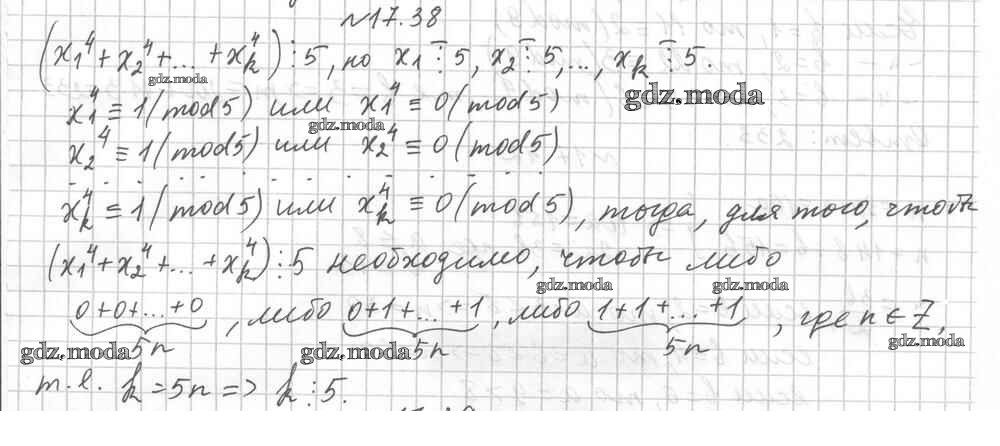 №17.38
(x₁⁴ + x₂⁴ + ... + x_k⁴) ⋮ 5, но x₁ ⋮̅ 5, x₂ ⋮̅ 5, ..., x_k ⋮̅ 5.
gdz.moda
gdz.moda
x₁⁴ ≡ 1 (mod 5) или x₁⁴ ≡ 0 (mod 5)
gdz.moda
x₂⁴ ≡ 1 (mod 5) или x₂⁴ ≡ 0 (mod 5)
- - - - - - - - - - - - - -
x_k⁴ ≡ 1 (mod 5) или x_k⁴ ≡ 0 (mod 5), тогда, для того, чтобы
(x₁⁴ + x₂⁴ + ... + x_k⁴) ⋮ 5 необходимо, чтобы либо
gdz.moda gdz.moda
0+0+...+0, либо 0+1+...+1, либо 1+1+...+1, где n ∈ Z,
5n 5n 5n
gdz.moda gdz.moda gdz.moda
т.е. k = 5n => k ⋮ 5.